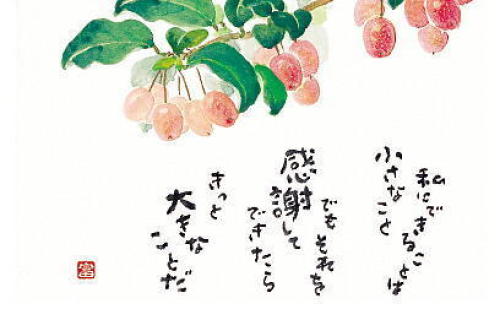 私にできることは
小さなこと
でもそれを
感謝して
できたら
きっと
大きな
ことだ
富